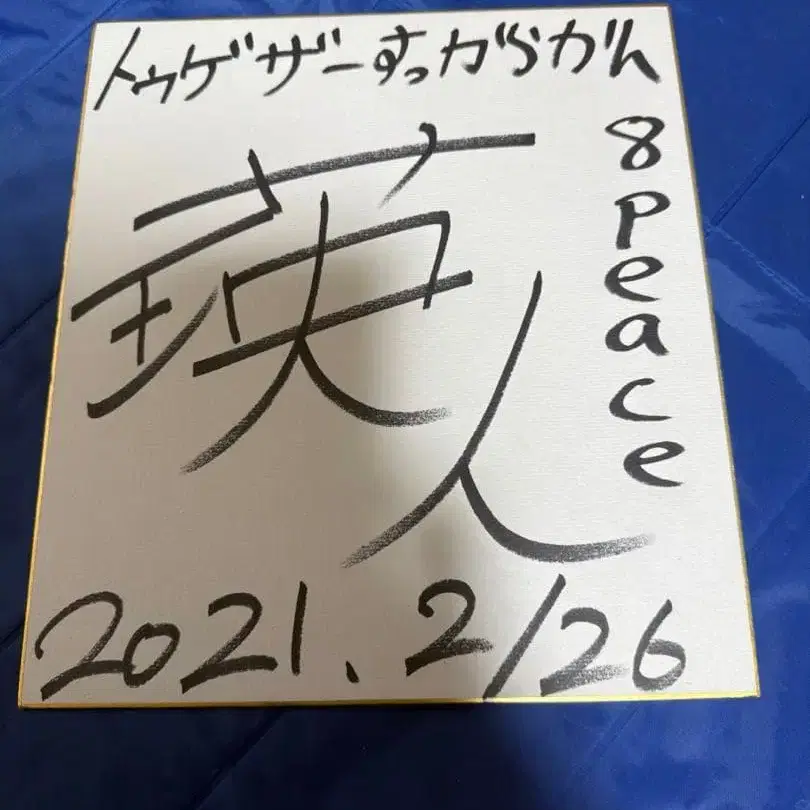 トゥゲザーすっからかん
瑛人
8peace
2021.2/26